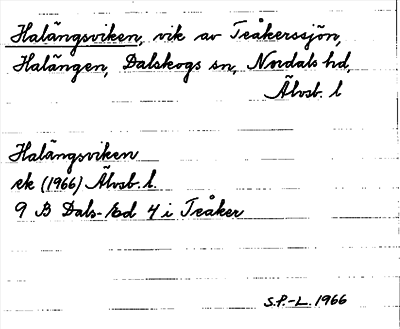 Halängsviken, vik av Teåkerssjön,
Halängen, Dalskogs sn, Nordals hd,
Älvsb. l
Halängsviken
ek (1966) Älvsb. l.
9 B Dals-Ed 4 i Teåker
S.P.-L. 1966